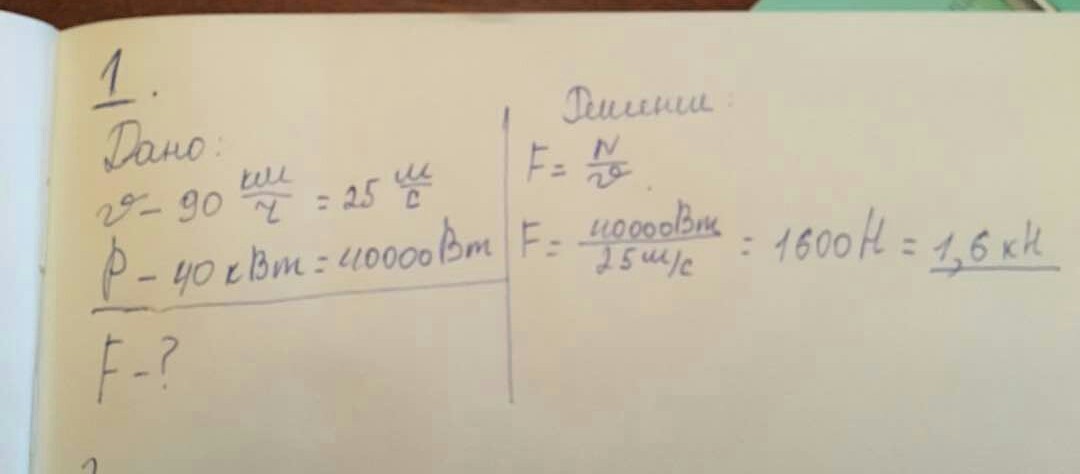 1.
Дано:
v - 90 км/ч = 25 м/с
P - 40 кВт = 40000Вт
F - ?
Решение:
F = N/v.
F = 40000Вт/25м/с = 1600Н = 1,6 кН